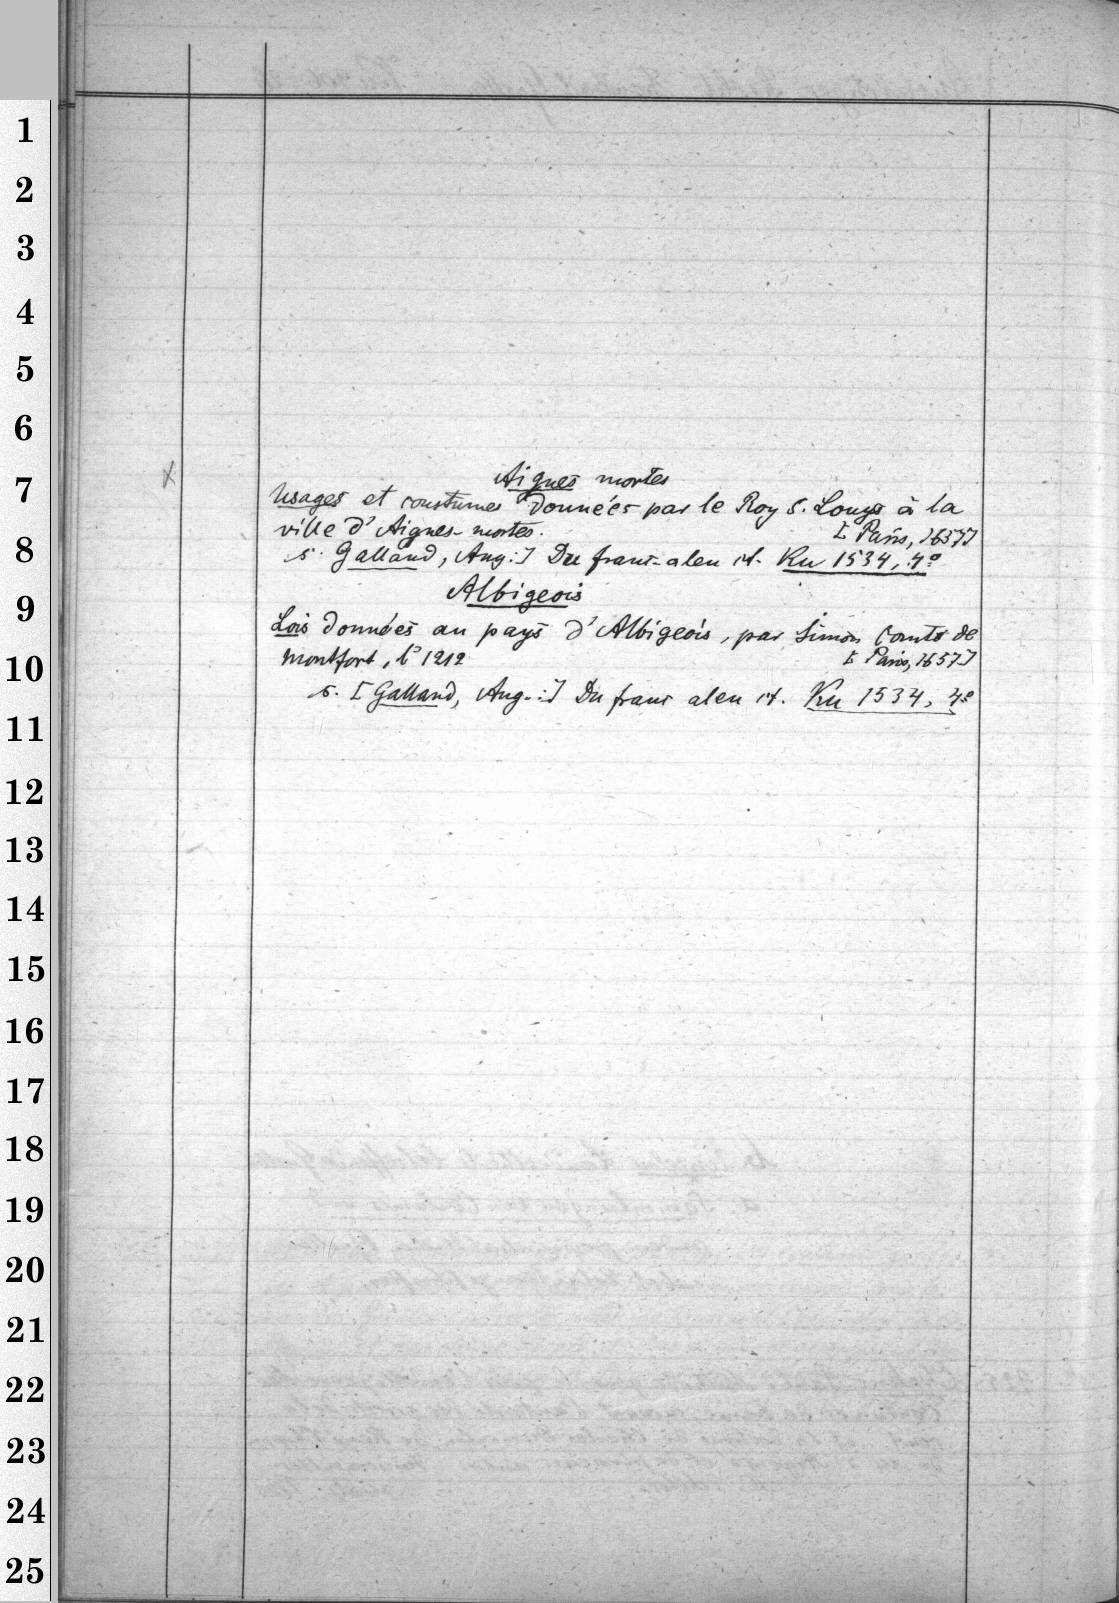 1
2
3
4
5
6
7
8
9
10
11
12
13
14
15
16
17
18
19
20
21
22
23
24
25
Aigues mortes
Usages et coustumes données par le Roy S. Louys à la
ville d'Aigues-mortes. [Paris, 1637]
s. Galland, Aug:] Du franc-aleu it. Ku 1534, 4°
Albigeois
Lois données au pays d'Albigeois, par Simon comte de
Montfort, 1212 [Paris, 1637]
s. [Galland, Aug.:] Du franc aleu it. Ku 1534, 4°